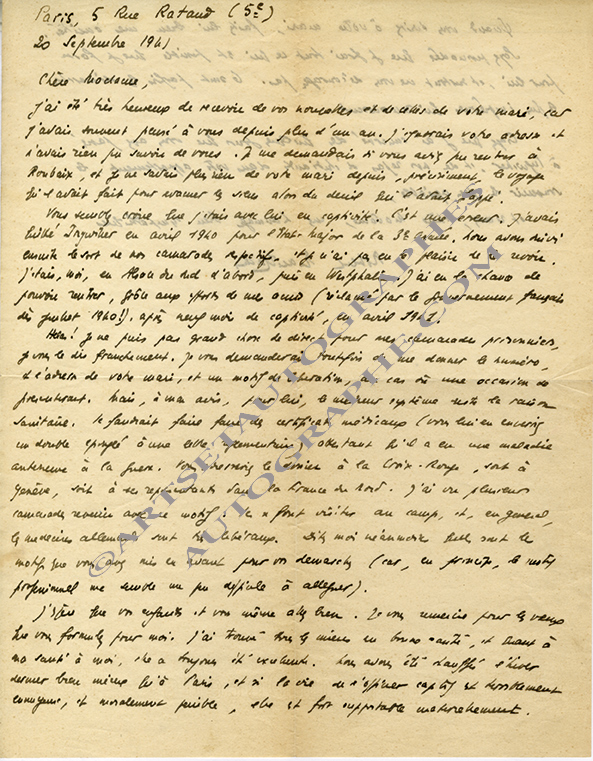 Paris, 5 Rue Rataud (5e)
20 Septembre 1941
Chère Madame,
j'ai été très heureux de recevoir de vos nouvelles et de celles de votre mari, car
j'avais souvent pensé à vous depuis plus d'un an. J'ignorais votre adresse et
n'avais rien pu savoir de vous. Je me demandais si vous aviez pu rentrer à
Roubaix, et je ne savais plus rien de votre mari depuis, précisément, le voyage
qu'il avait fait pour evacuer les siens alors du deuil qui l'avait frappé.
Vous semblez croire que j'étais avec lui en captivité. C'est une erreur. J'avais
quitté en avril 1940 pour l'Etat Major de la 3e Armée. Nous avons suivi
ensuite le sort de nos camarades respectifs et n'ai pas eu le plaisir de le revoir.
J'étais, moi, en d'abord, puis en Westphalie. J'ai eu la chance de
pouvoir rentrer, grâce aux efforts de mes amis (réclamé par le Gouvernement français
dès juillet 1940!!), après neuf mois de captivité, en avril 1941.
Hélas! je ne puis pas grand chose de direct pour mes camarades prisonniers,
je vous le dis franchement. Je vous demanderai toutefois de me donner le numéro,
et l'adresse de votre mari, et un motif de libération, au cas où une occasion se
présenterait. Mais, à mon avis, pour lui, le meilleur système reste la raison
sanitaire. Il faudrait faire faire des certificats médicaux (vous lui en enverriez
un double épinglé à une lettre réglementaire) attestant qu'il a eu une maladie
antérieure à la guerre. Vous adresseriez le dossier à la Croix-Rouge, soit à
Genève, soit à ses représentants dans la France du Nord. J'ai vu plusieurs
camarades revenir avec ce motif. Ils font visites au camp, et, en général,
les médecins allemands sont très libéraux. Dites moi néanmoins quels sont les
motifs que vous avez mis en avant pour vos démarches (car, en principe, le motif
professionnel me semble un peu difficile à alléguer).
J'espère que vos enfants et vous même allez bien. Je vous remercie pour les vœux
que vous formulez pour moi. J'ai trouvé tous les miens en bonne santé, et quant à
ma santé à moi, elle a toujours été excellente. Nous avons été chauffés l'hiver
dernier bien mieux qu'à Paris, et si la vie de l'officier captif est terriblement
ennuyeuse, et moralement pénible, elle est fort supportable matériellement.
©ARTSETAUTOGRAPHES
AUTOGRAPHE.COM